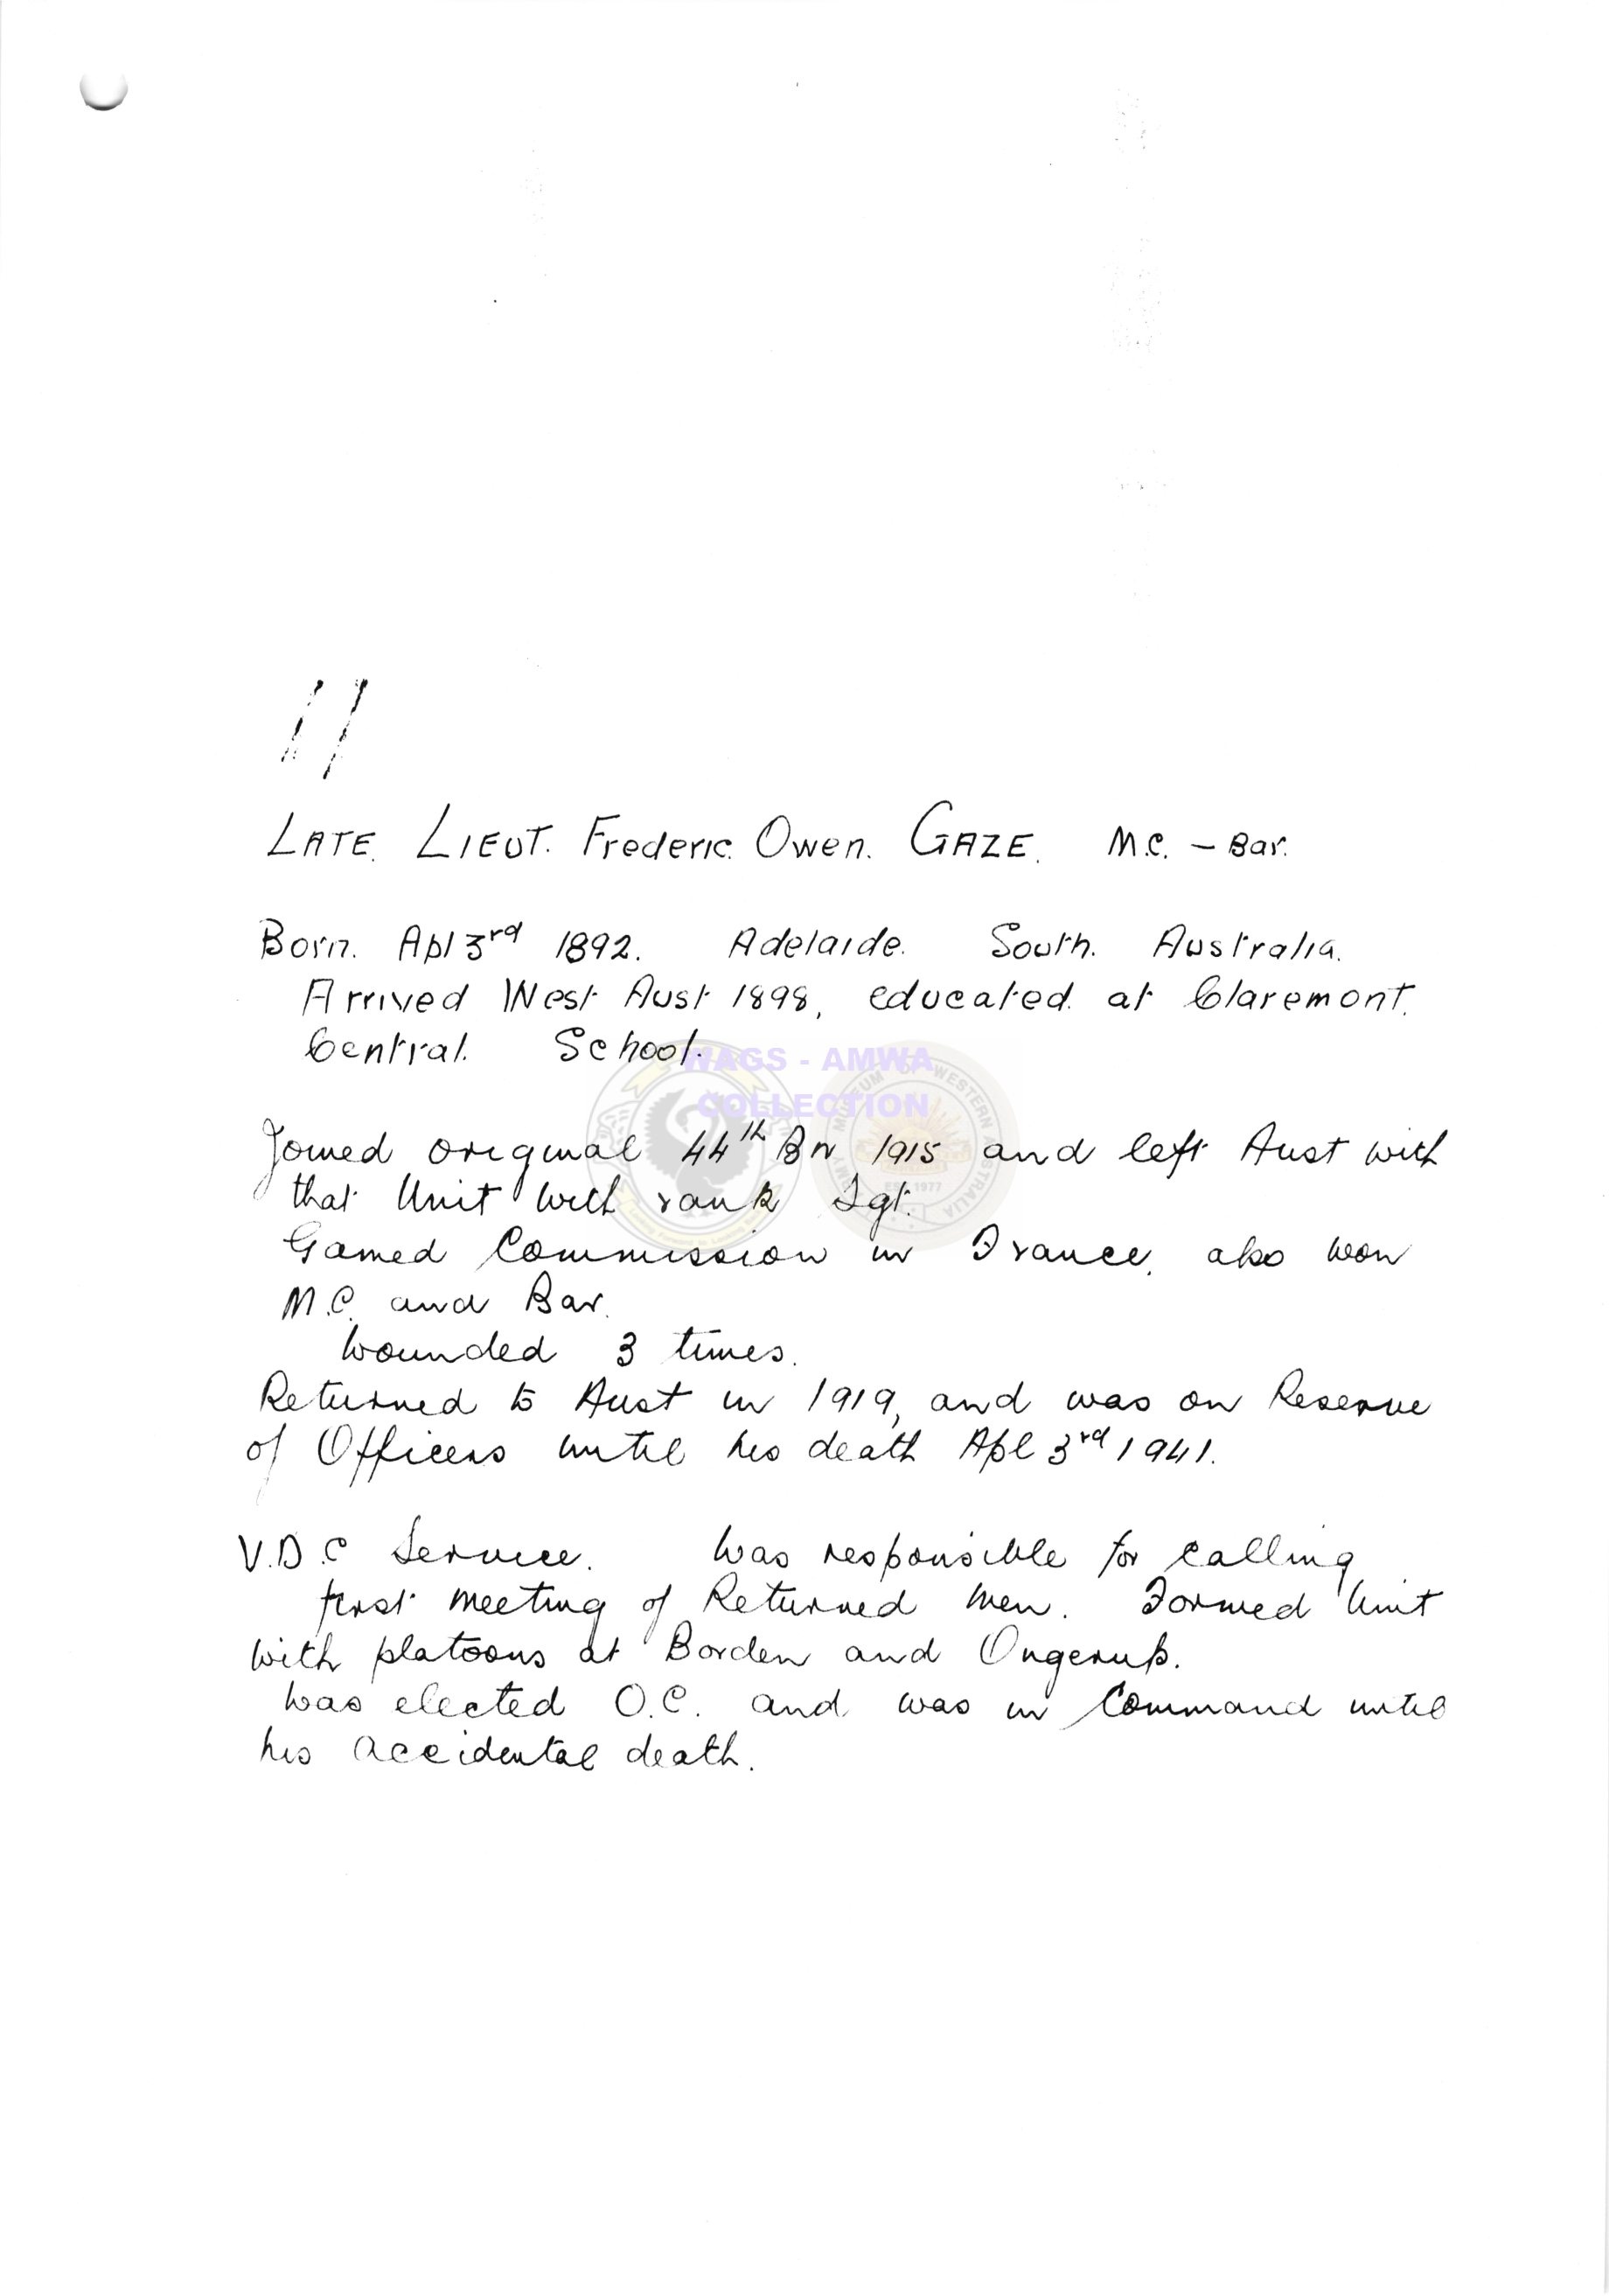 LATE. LIEUT. Frederic. Owen. GAZE. M.C. – Bar.
Born. Apl 3rd 1892. Adelaide. South. Australia.
Arrived West Aust 1898, educated. at Claremont.
Central. School.
WAGS - AMWA
COLLECTION
Joined original 44th Bn 1915 and left Aust with
that Unit with rank Sgt.
Gained Commission in France, also won
M.C. and Bar.
Wounded 3 times.
Returned to Aust in 1919, and was on Reserve
of Officers until his death Apl 3rd 1941.
V.D.C Service. Was responsible for calling
first meeting of Returned men. Formed Unit
with platoons at Borden and Ongerup.
Was elected O.C. and was in Command until
his accidental death.